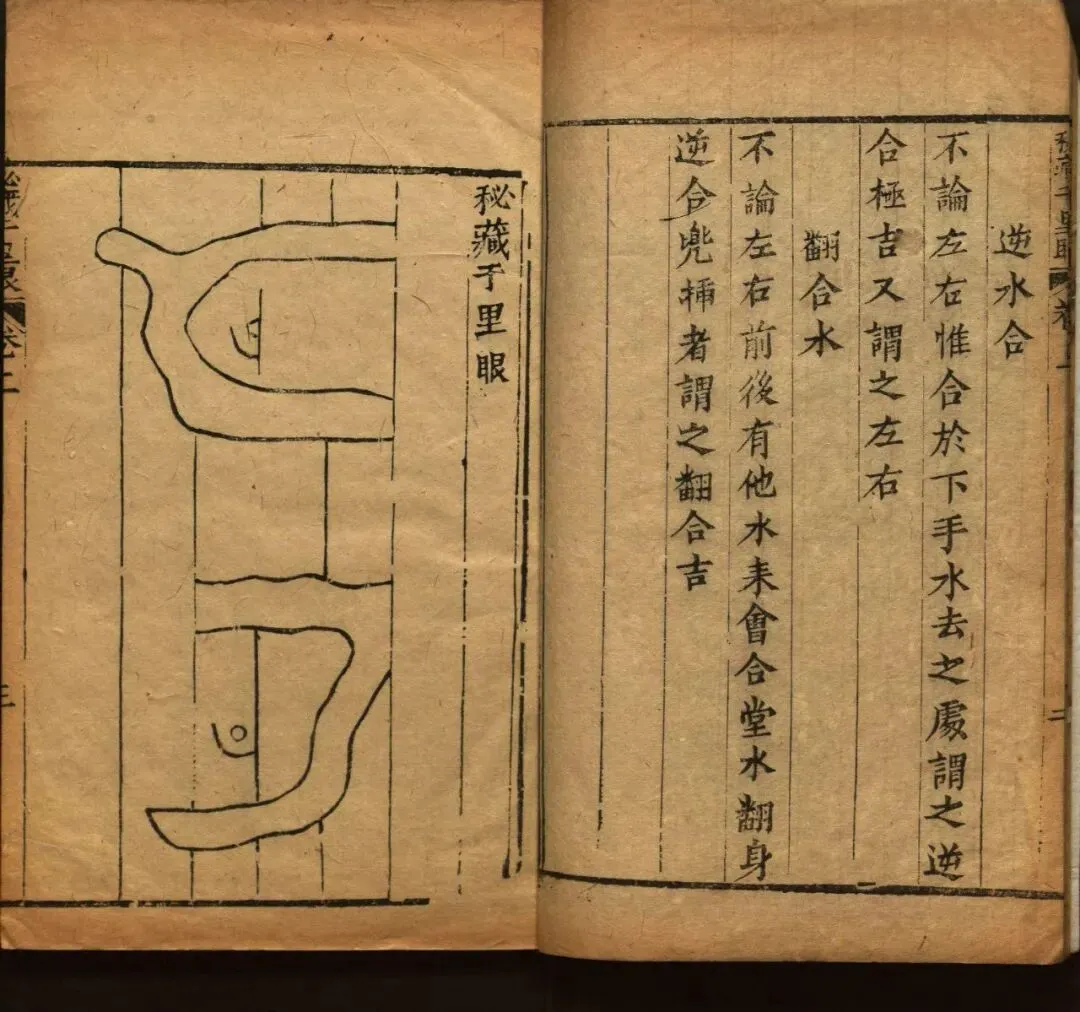 秘藏千里眼
卷二
二
逆水合
不論左右惟合於下手水去之處謂之逆
合極吉又謂之左右
翻合水
不論左右前後有他水来會合堂水翻身
逆合兜插者謂之翻合吉
秘藏千里眼
秘藏千里眼
卷二
三